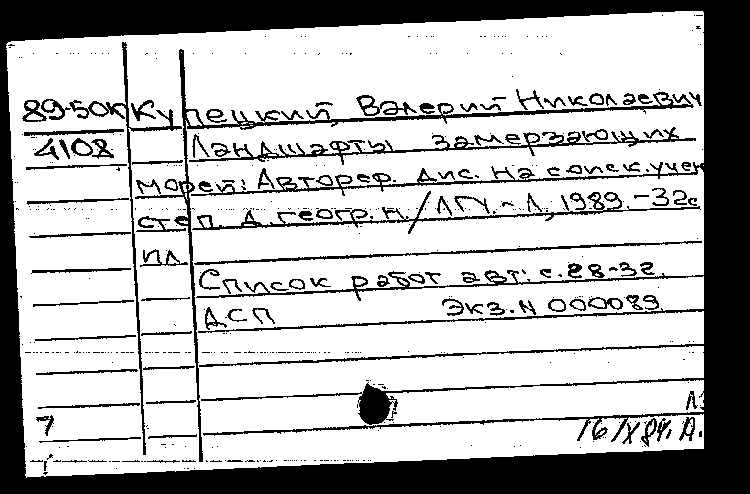 89-50к Купецкий, Валерий Николаевич
4108 Ландшафты замерзающих
морей: Автореф. дис. на соиск. учен
степ. д. геогр. н. / ЛГУ. - Л, 1989. - 32с
ил
Список работ авт.: с. 28-32.
ДСП Экз. N 000089
7